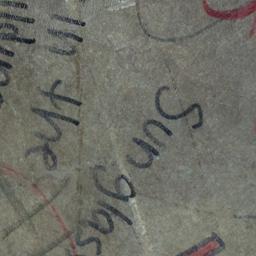 in the
Sunglas